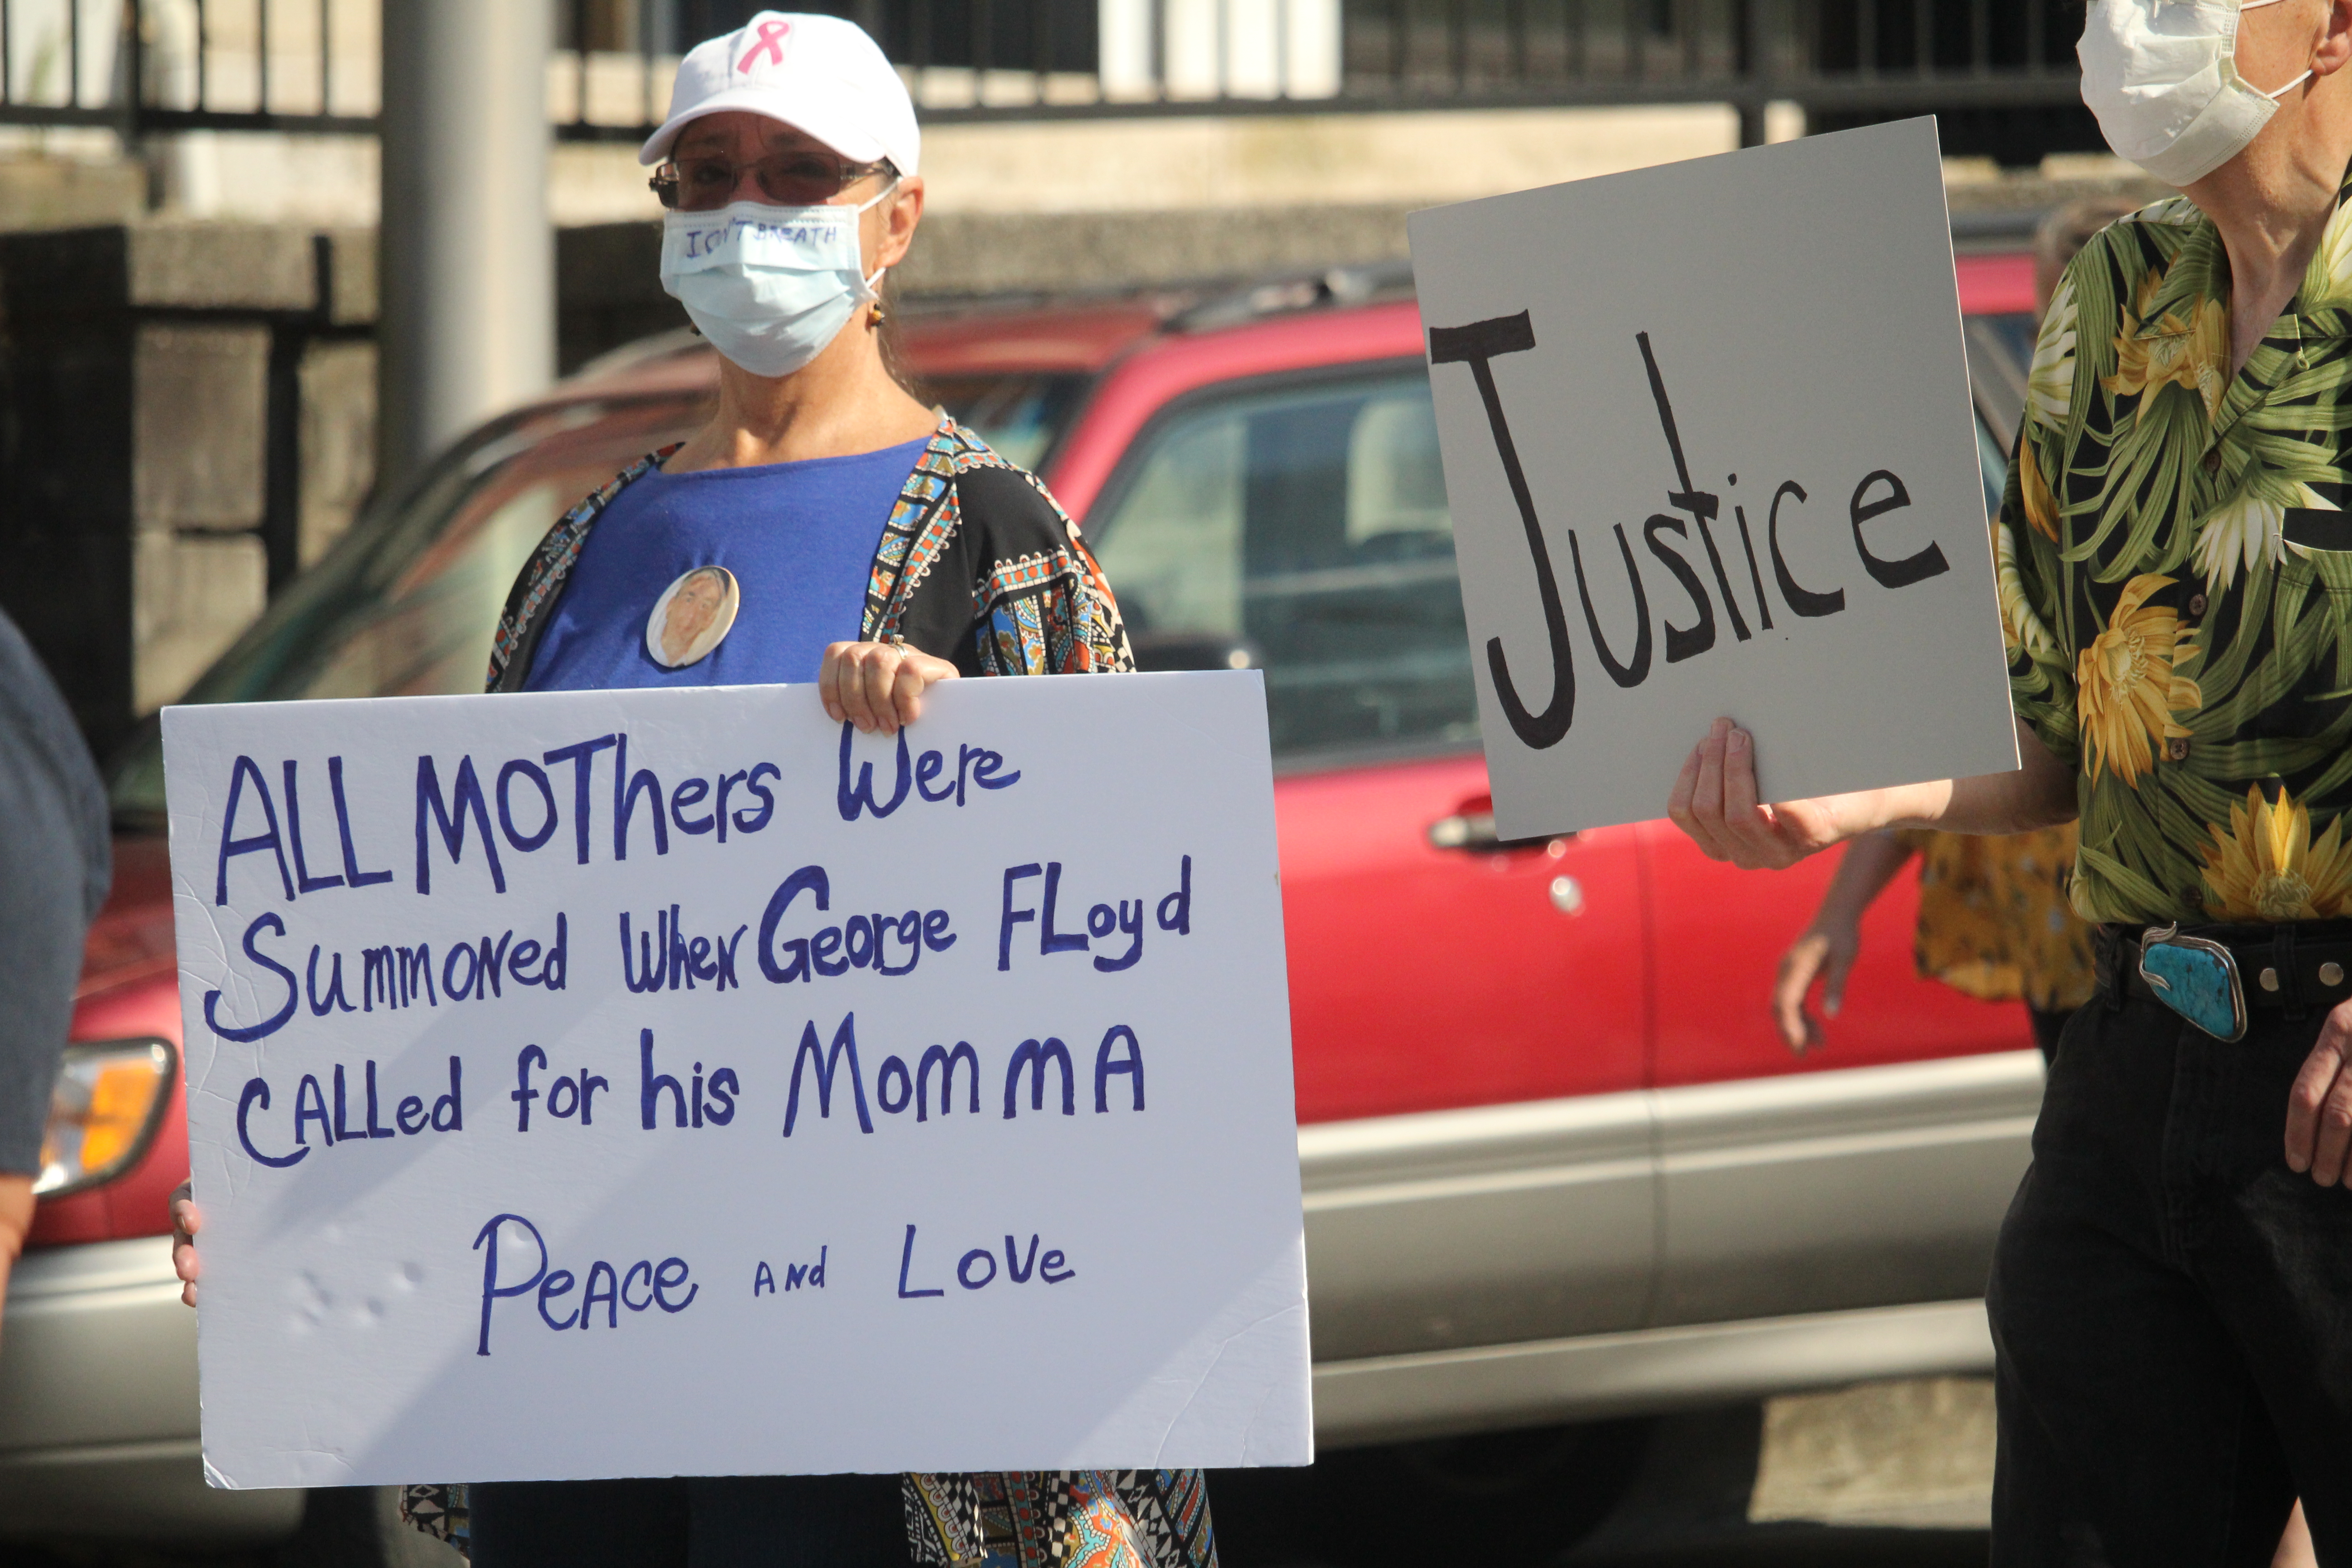 I CAN'T BREATH
ALL MOThers Were
Summoned When George FLoyd
CALLed for his MommA
PeAce ANd LoVe
Justice